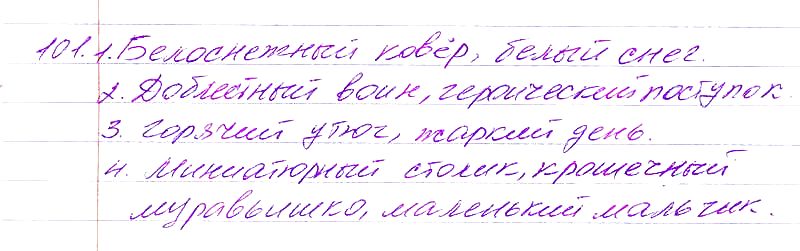 101. 1. Белоснежный ковёр, белый снег.
2. Доблестный воин, героический поступок
3. Горячий утюг, жаркий день.
4. Миниатюрный столик, крошечный
муравьишко, маленький мальчик.